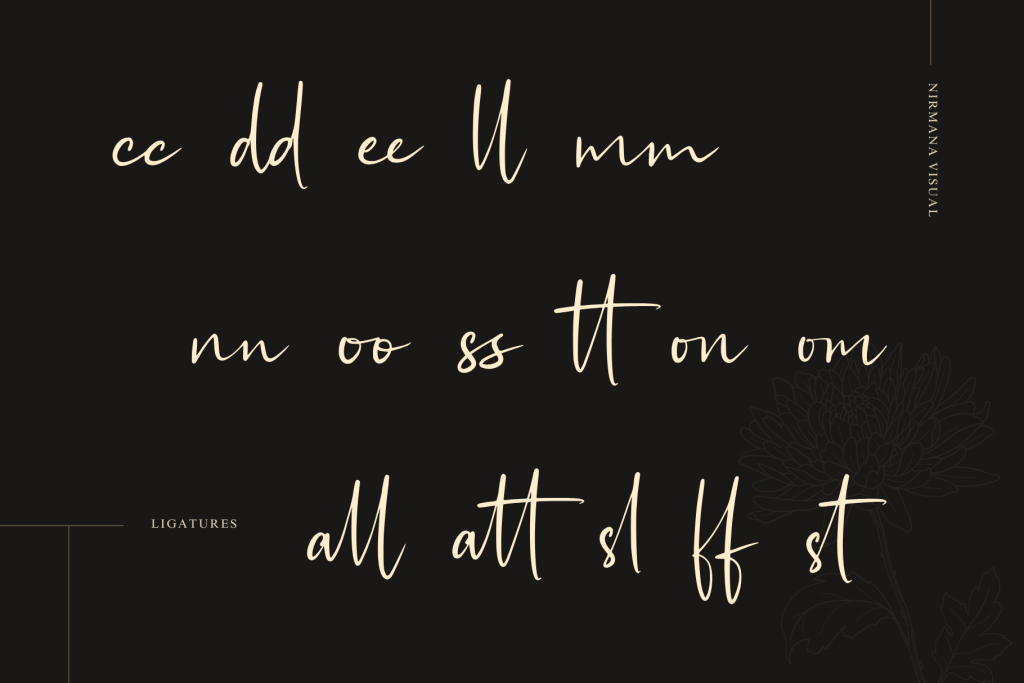 cc dd ee ll mm
NIRMANA VISUAL
nn oo ss tt on om
LIGATURES
all att sl ff st